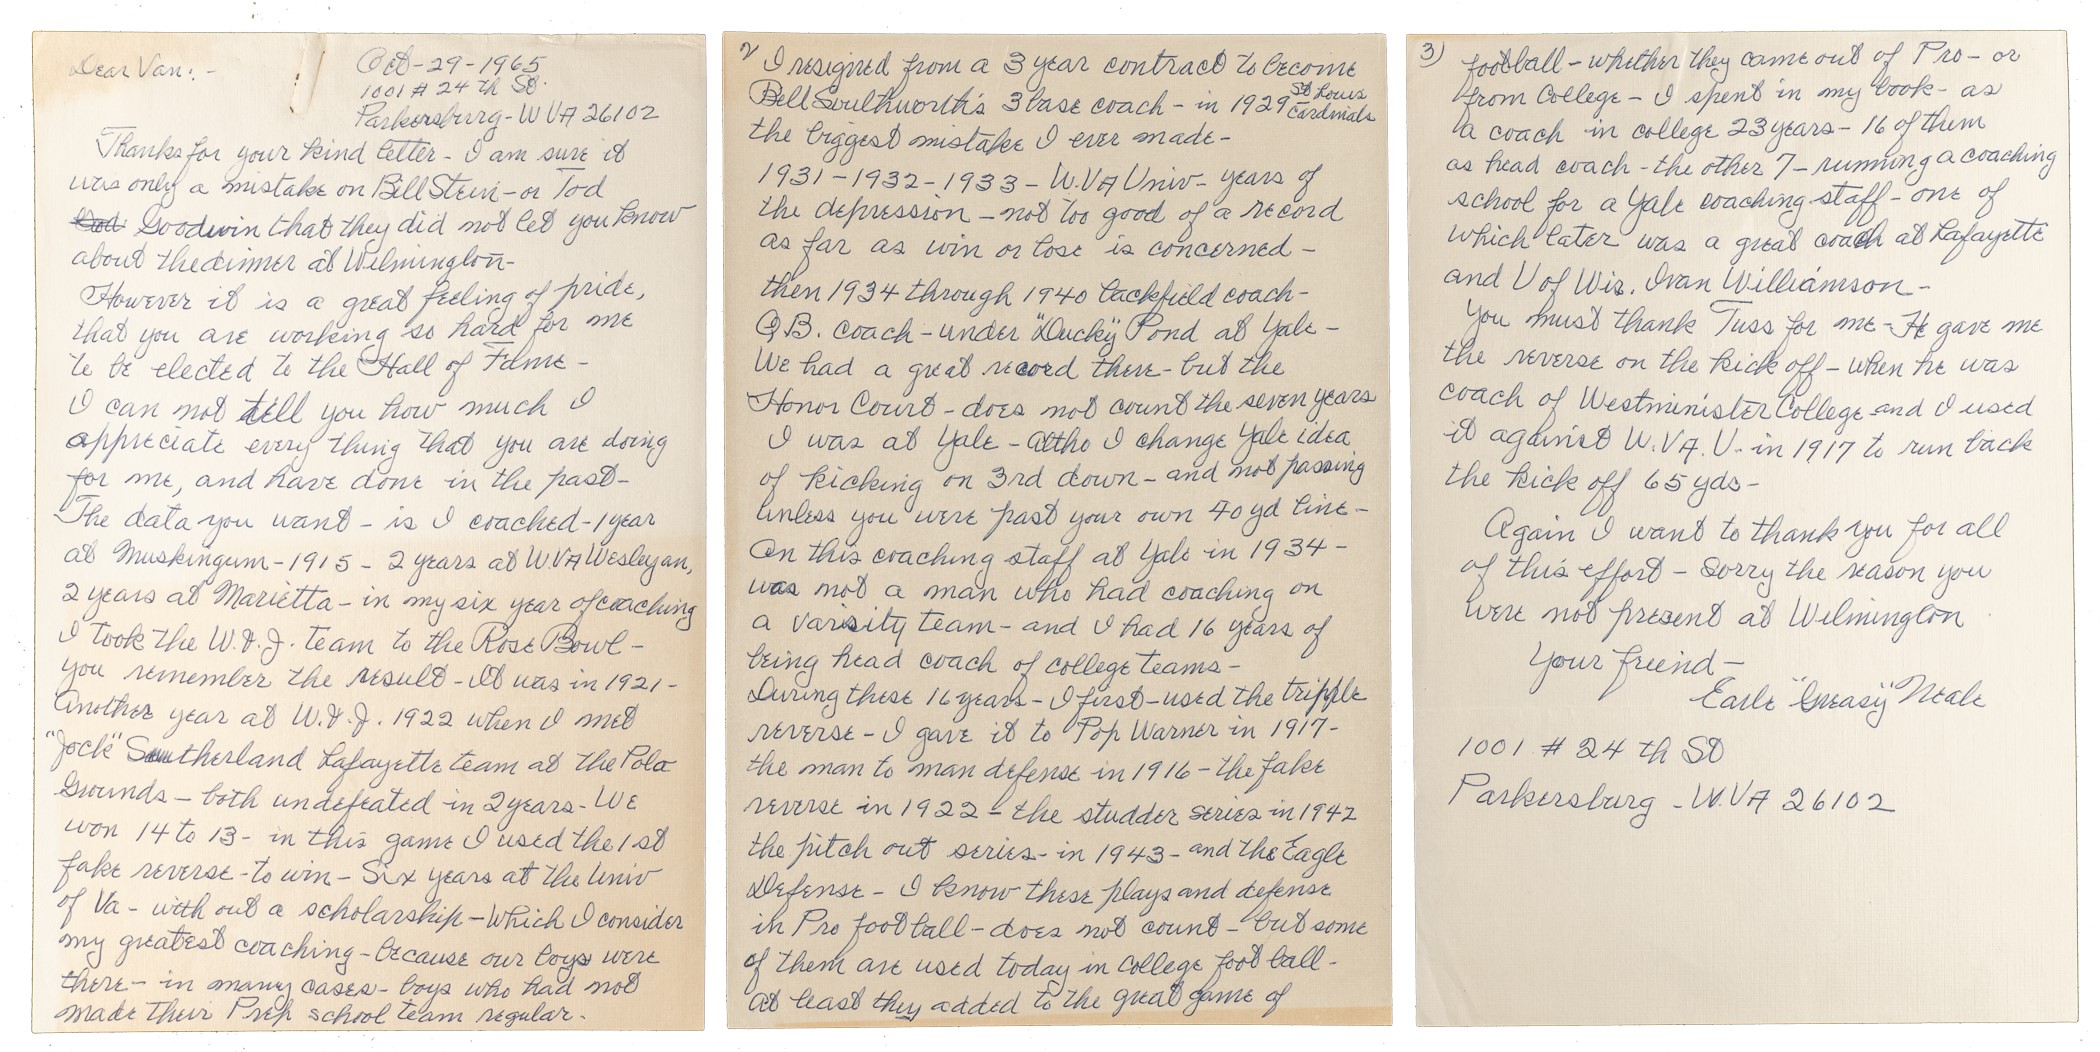 Dear Van: -
Oct-29-1965
1001 # 24 th St.
Parkersburg - W VA 26102
Thanks for your kind letter - I am sure it
was only a mistake on Bill Stein - or Tod
Goodwin that they did not let you know
about the dinner at Wilmington -
However it is a great feeling of pride,
that you are working so hard for me
to be elected to the Hall of Fame -
I can not tell you how much I
appreciate every thing that you are doing
for me, and have done in the past -
The data you want - is I coached - 1 year
at Muskingum - 1915 - 2 years at W.VA Wesleyan,
2 years at Marietta - in my six year of coaching
I took the W. & J. team to the Rose Bowl -
you remember the result - It was in 1921 -
Another year at W. & J. 1922 when I met
"Jock" Sutherland Lafayette team at the Polo
Grounds - both undefeated in 2 years - We
won 14 to 13 - in this game I used the 1 st
fake reverse - to win - Six years at the Univ
of Va - with out a scholarship - which I consider
my greatest coaching - because our boys were
there - in many cases - boys who had not
made their Prep school team regular -
2) I resigned from a 3 year contract to become
Bill Southworth's 3 base coach - in 1929 St Louis Cardinals
the biggest mistake I ever made -
1931 - 1932 - 1933 - W.VA Univ - years of
the depression - not too good of a record
as far as win or lose is concerned -
then 1934 through 1940 backfield coach -
Q.B. coach - under "Ducky" Pond at Yale -
We had a great record there - but the
Honor Court - does not count the seven years
I was at Yale - altho I change Yale idea
of kicking on 3rd down - and not passing
unless you were past your own 40 yd line -
On this coaching staff at Yale in 1934 -
was not a man who had coaching on
a varisity team - and I had 16 years of
being head coach of college teams -
During these 16 years - I first - used the tripple
reverse - I gave it to Pop Warner in 1917 -
the man to man defense in 1916 - the fake
reverse in 1922 - the studder series in 1942
the pitch out series - in 1943 - and the Eagle
Defense - I know these plays and defense
in Pro football - does not count - but some
of them are used today in college foot ball -
at least they added to the great game of
3) football - whether they came out of Pro - or
from College - I spent in my book - as
a coach in college 23 years - 16 of them
as head coach - the other 7 - running a coaching
school for a Yale coaching staff - one of
which later was a great coach at Lafayette
and U of Wis. Ivan Williamson -
You must thank Tuss for me - He gave me
the reverse on the kick off - when he was
coach of Westminister College and I used
it against W. VA. U. - in 1917 to run back
the kick off 65 yds -
Again I want to thank you for all
of this effort - Sorry the reason you
were not present at Wilmington
Your friend -
Earle "Greasy" Neale
1001 # 24 th St
Parkersburg - W.VA 26102